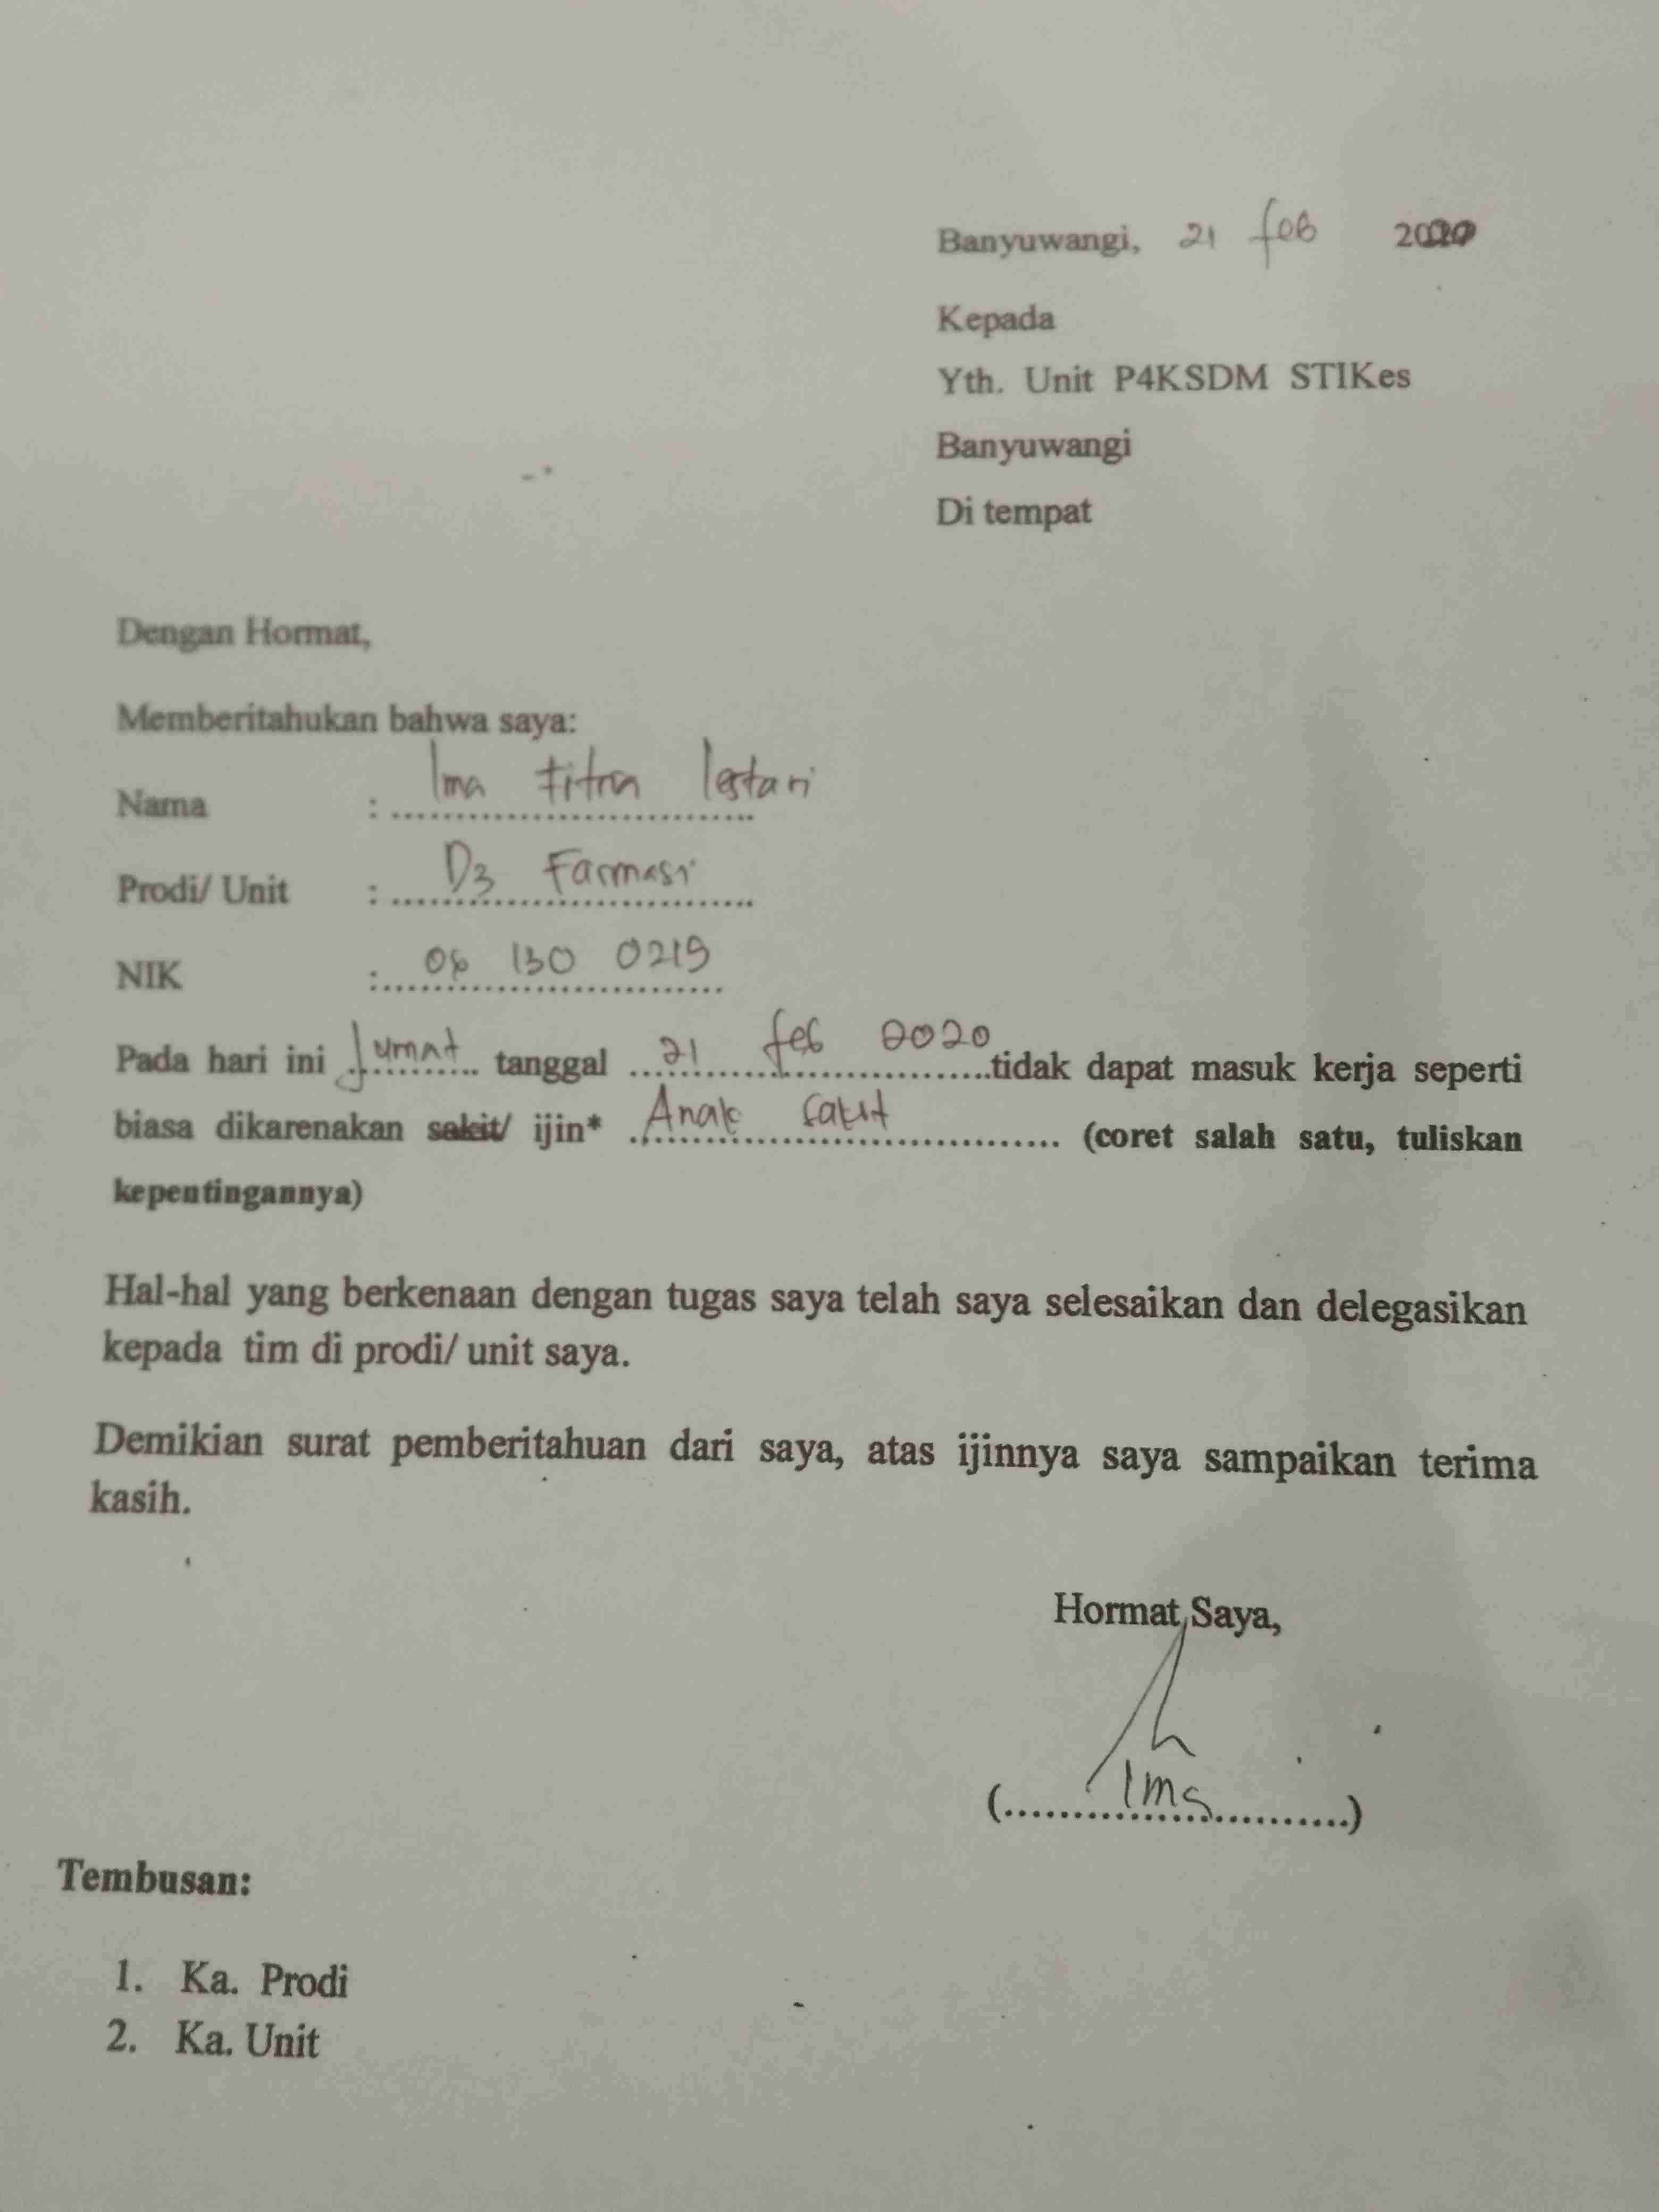 Banyuwangi, 21 feb 2020
Kepada
Yth. Unit P4KSDM STIKes
Banyuwangi
Di tempat
Dengan Hormat,
Memberitahukan bahwa saya:
Nama : Ima Fitria lestari
Prodi/ Unit : D3 Farmasi
NIK : 06 130 0219
Pada hari ini Jumat tanggal 21 feb 2020 tidak dapat masuk kerja seperti
biasa dikarenakan sakit/ ijin* Anak sakit (coret salah satu, tuliskan
kepentingannya)
Hal-hal yang berkenaan dengan tugas saya telah saya selesaikan dan delegasikan
kepada tim di prodi/ unit saya.
Demikian surat pemberitahuan dari saya, atas ijinnya saya sampaikan terima
kasih.
Hormat Saya,
(Ima)
Tembusan:
1. Ka. Prodi
2. Ka. Unit